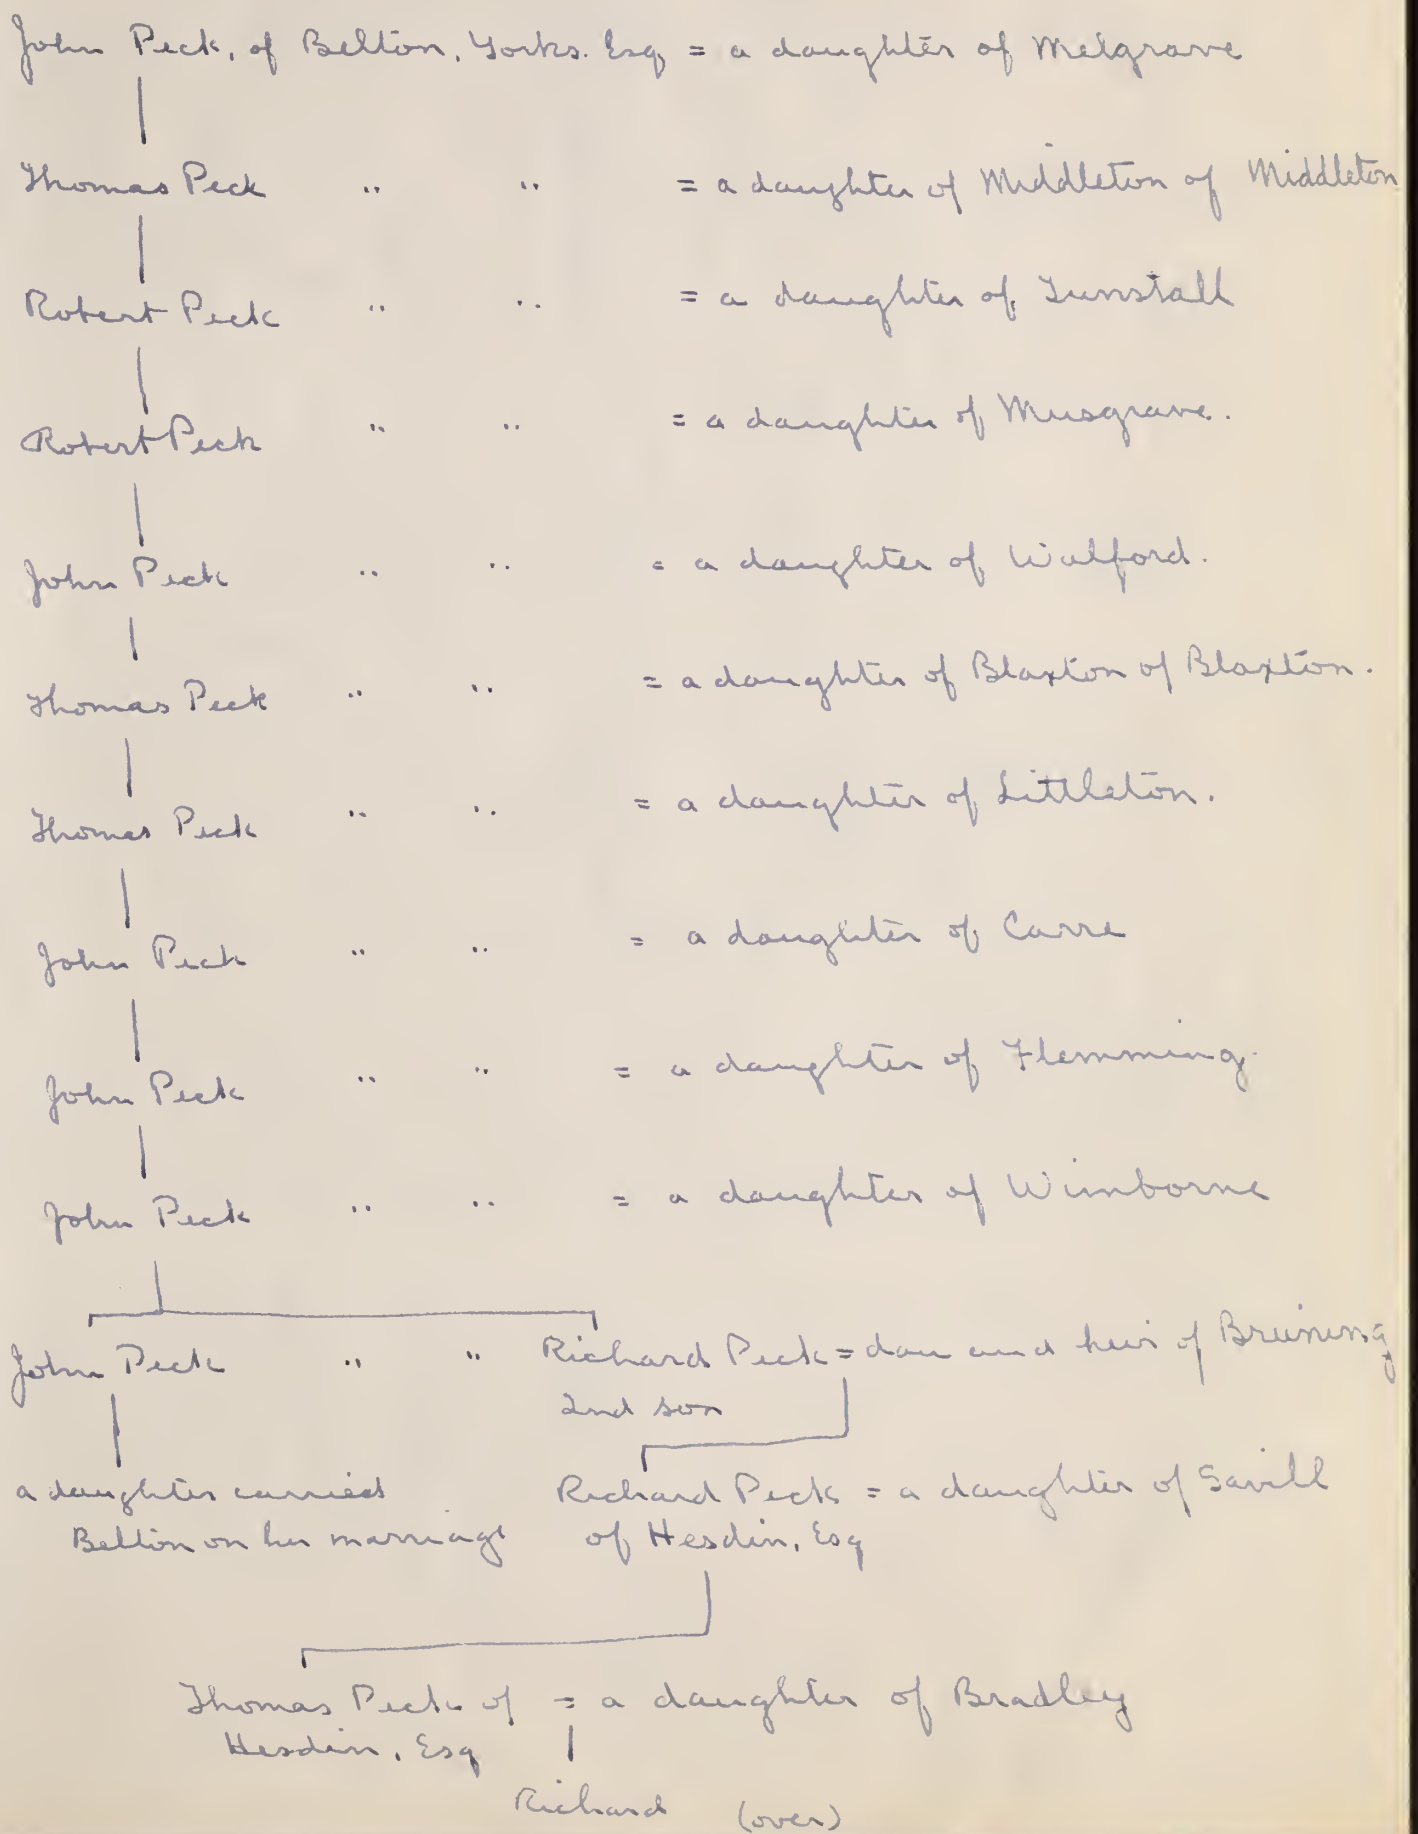 John Peck, of Belton, Yorks. Esq = a daughter of Melgrave
Thomas Peck " " = a daughter of Middleton of Middleton
Robert Peck " " = a daughter of Tunstall
Robert Peck " " = a daughter of Musgrave.
John Peck " " = a daughter of Walford.
Thomas Peck " " = a daughter of Blaxton of Blaxton.
Thomas Peck " " = a daughter of Littleton.
John Peck " " = a daughter of Carre
John Peck " " = a daughter of Flemming.
John Peck " " = a daughter of Wimborne
John Peck " " Richard Peck = dau and heir of Bruning
2nd son
a daughter carried Richard Peck = a daughter of Savill
Belton on her marriage of Hesdin, Esq
Thomas Peck of = a daughter of Bradley
Hesdin, Esq
Richard (over)